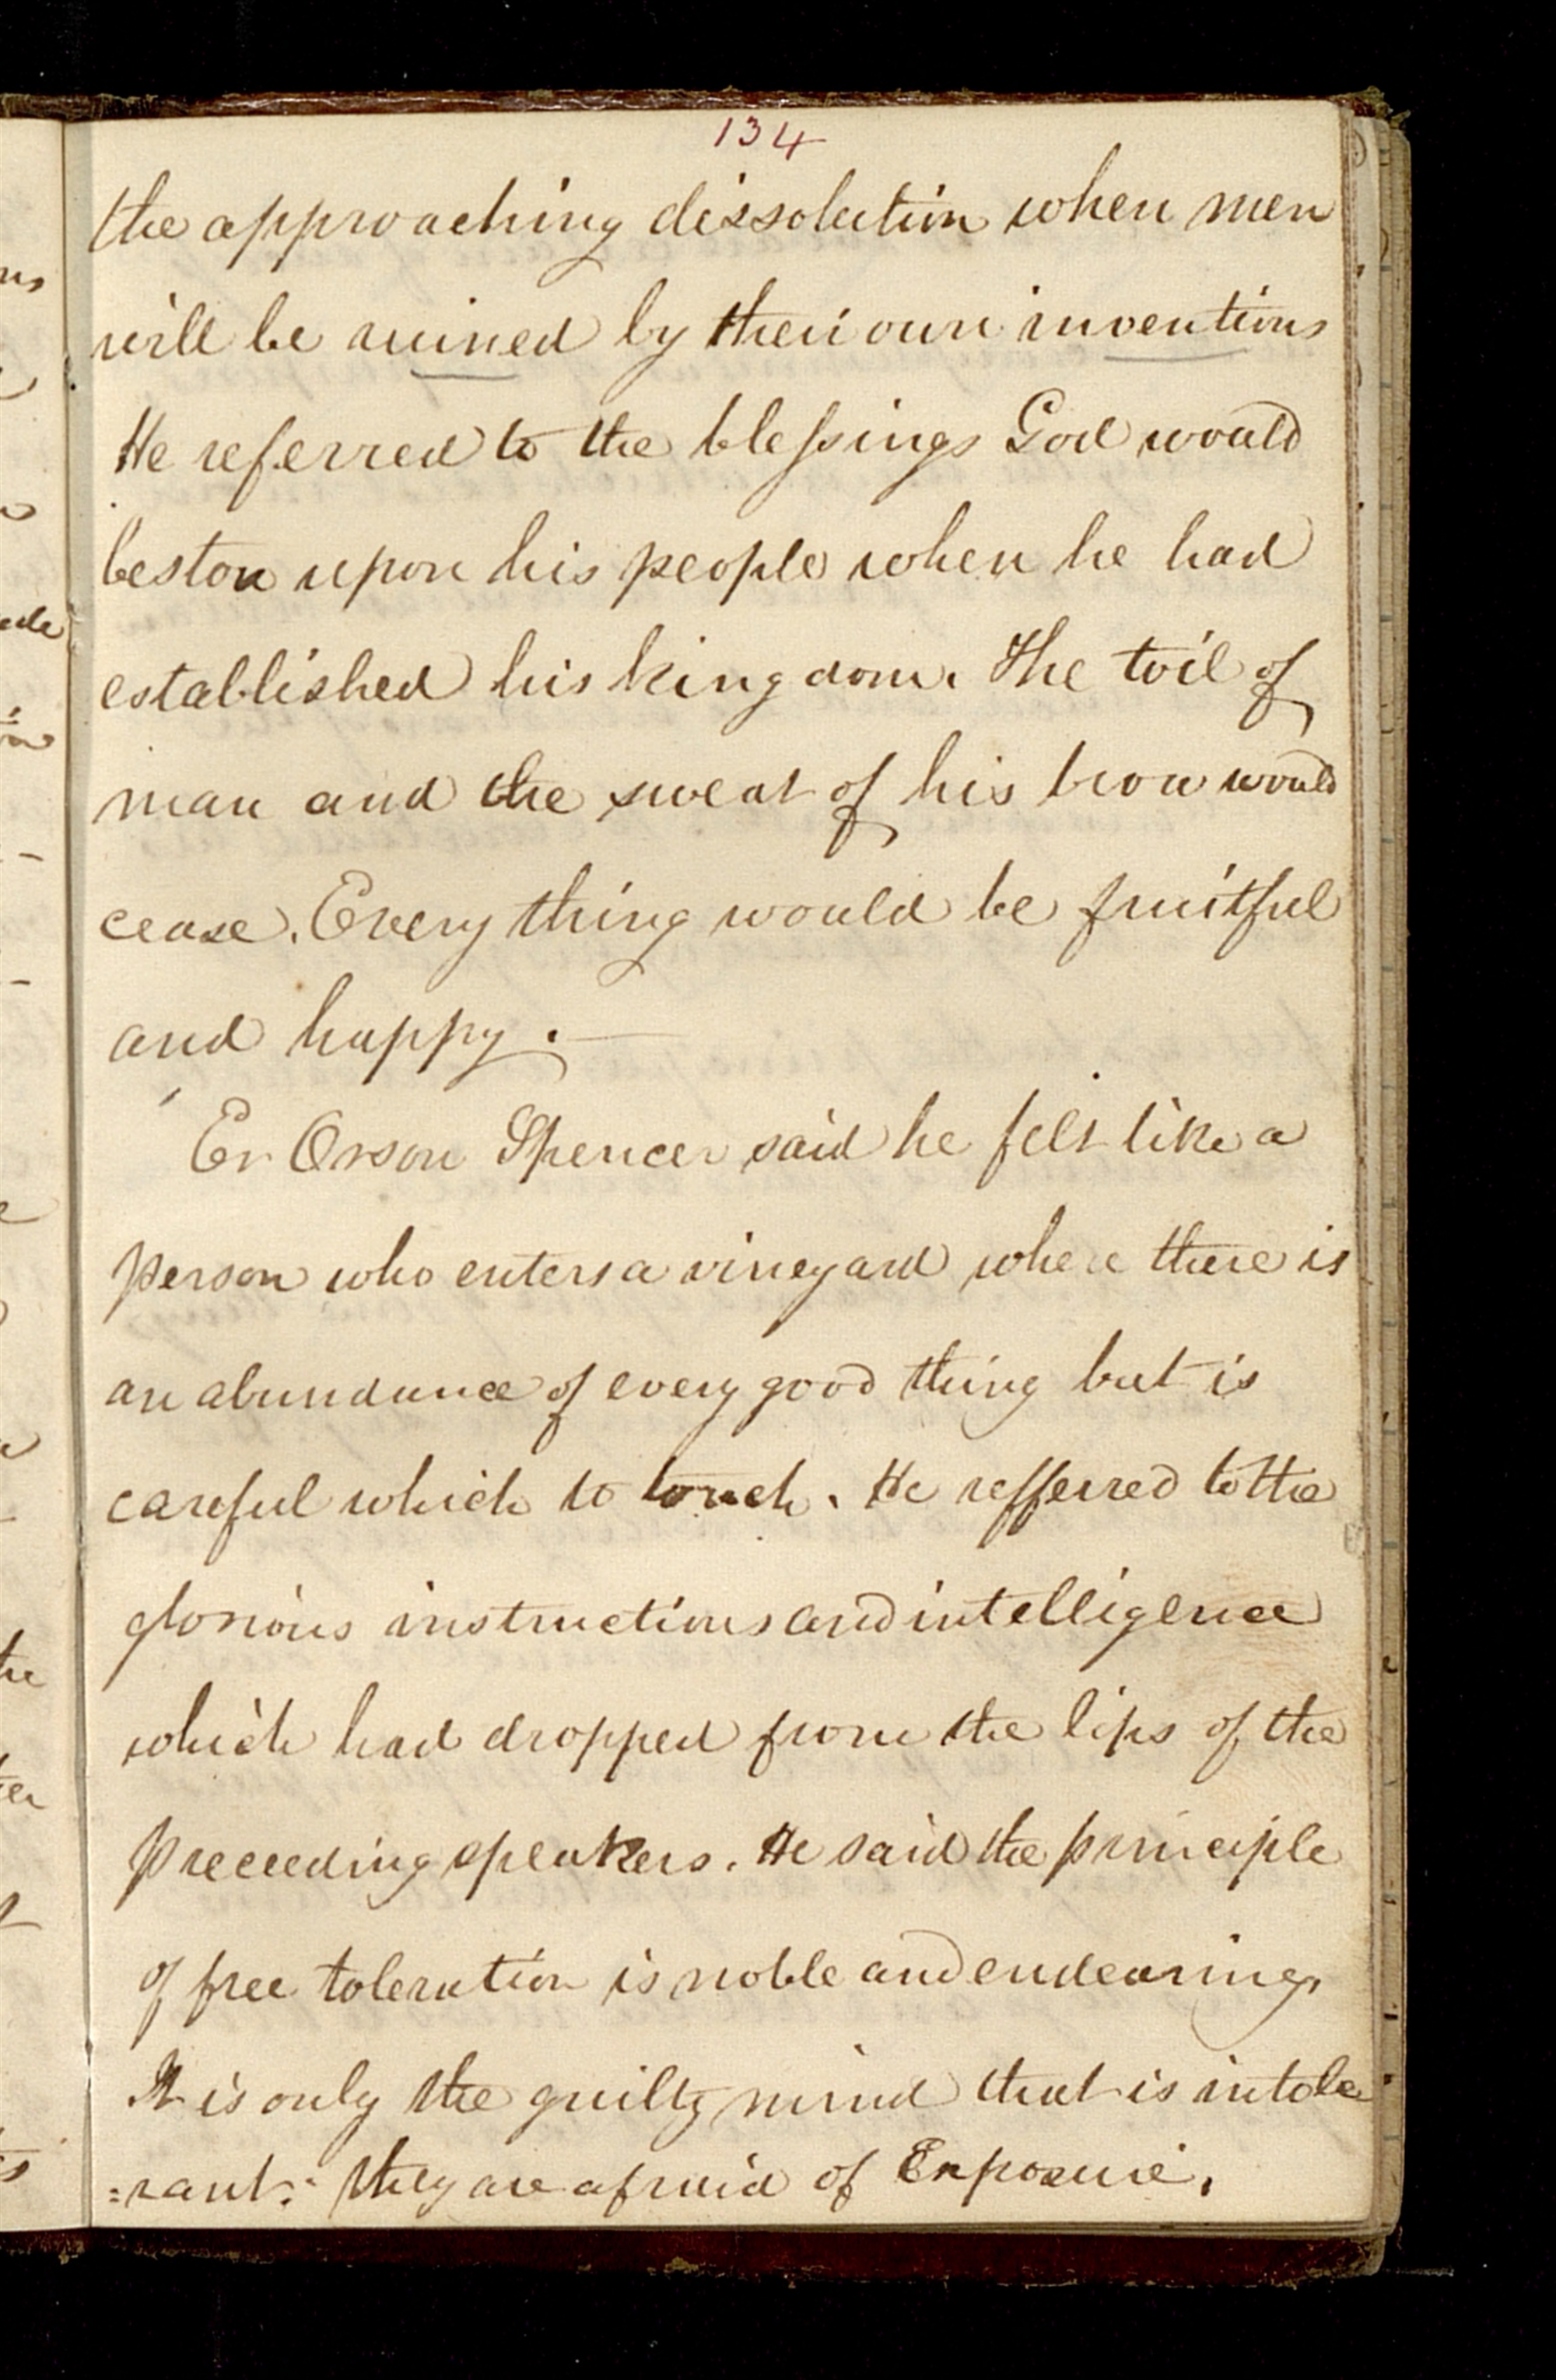 134
the approaching dissolution when men
will be ruined by their own inventions
He referred to the blessings God would
bestow upon his people when he had
established his kingdom. The toil of
man and the sweat of his brow would
cease. Every thing would be fruitful
and happy. —
Er Orson Spencer said he felt like a
person who enters a vineyard where there is
an abundance of every good thing but is
careful which to touch. He refferred to the
glorious instructions and intelligence
which had dropped from the lips of the
preceeding speakers. He said the principle
of free toleration is noble and endearing,
It is only the guilty mind that is intole
=rant: they are afraid of Exposure.